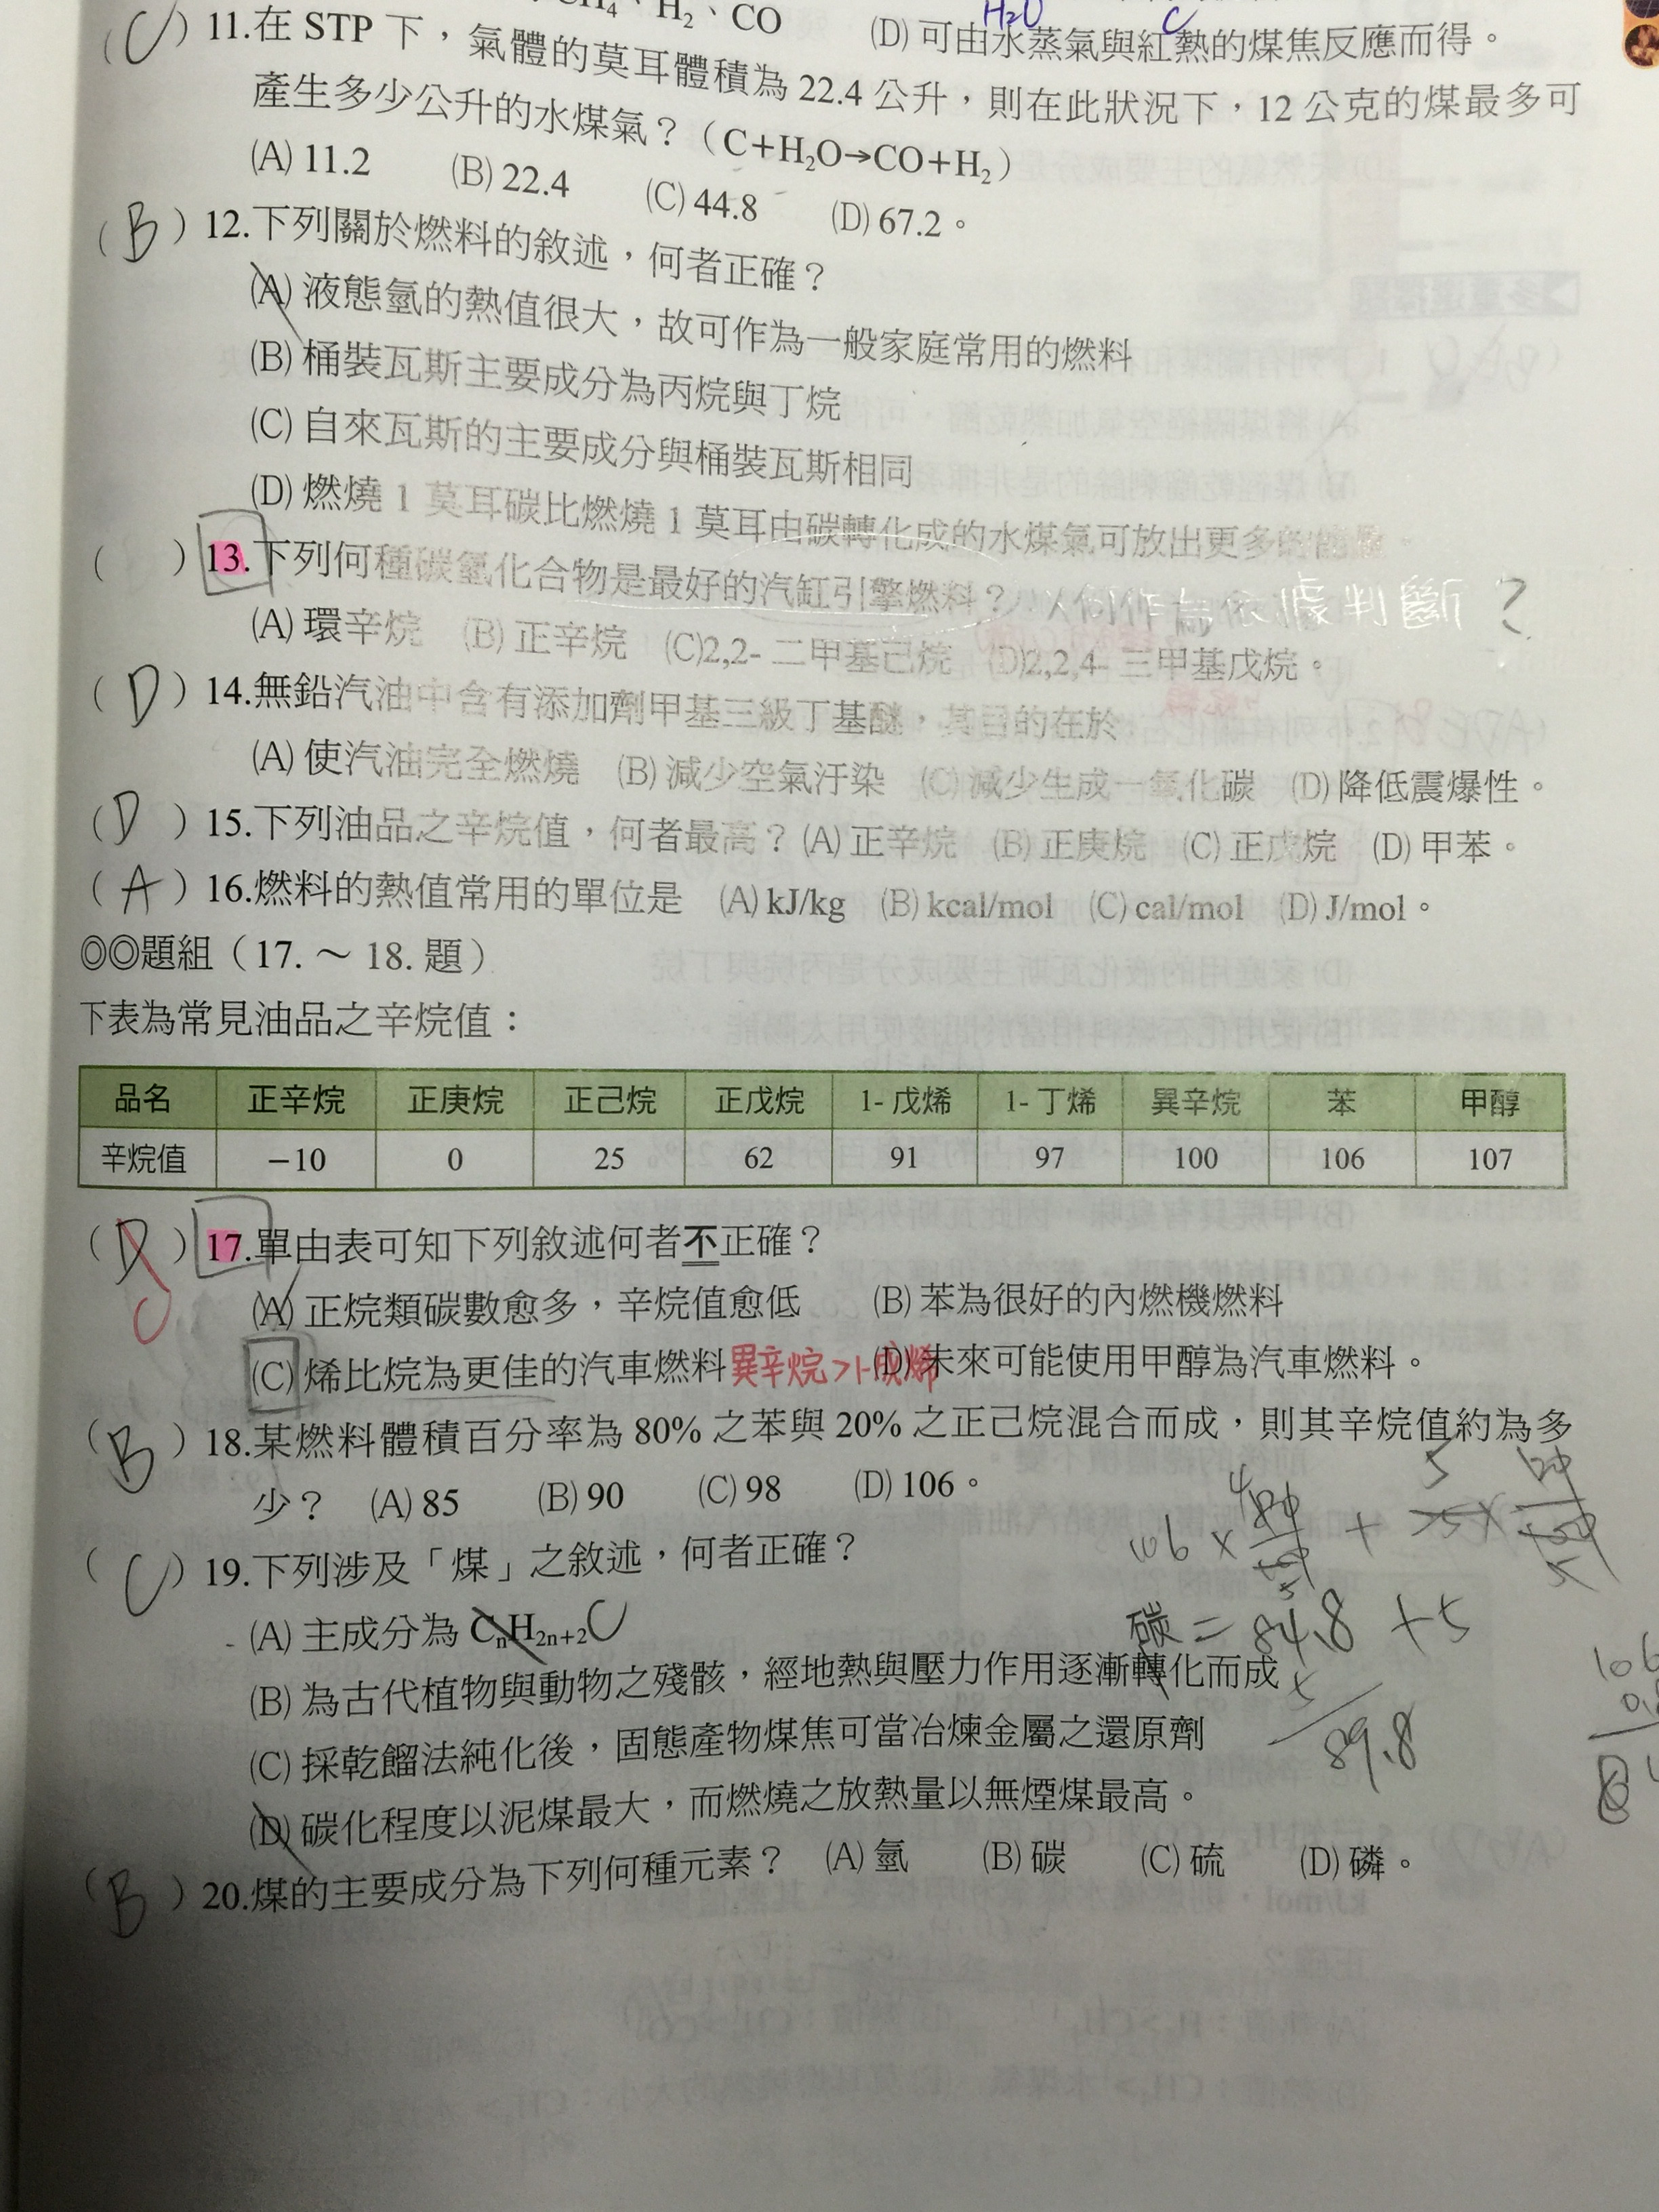 CH₄、H₂、CO
(D) 可由水蒸氣與紅熱的煤焦反應而得。
H₂O
C
(C) 11.在 STP 下，氣體的莫耳體積為 22.4 公升，則在此狀況下，12 公克的煤最多可
產生多少公升的水煤氣？（C+H₂O→CO+H₂）
(A) 11.2 (B) 22.4 (C) 44.8 (D) 67.2。
(B) 12.下列關於燃料的敘述，何者正確？
(A) 液態氫的熱值很大，故可作為一般家庭常用的燃料
(B) 桶裝瓦斯主要成分為丙烷與丁烷
(C) 自來瓦斯的主要成分與桶裝瓦斯相同
(D) 燃燒 1 莫耳碳比燃燒 1 莫耳由碳轉化成的水煤氣可放出更多的能量。
( ) 13.下列何種碳氫化合物是最好的汽缸引擎燃料？以何作為依據判斷？
(A) 環辛烷 (B) 正辛烷 (C)2,2- 二甲基己烷 (D)2,2,4- 三甲基戊烷。
(D) 14.無鉛汽油中含有添加劑甲基三級丁基醚，其目的在於
(A) 使汽油完全燃燒 (B) 減少空氣汙染 (C) 減少生成一氧化碳 (D) 降低震爆性。
(D) 15.下列油品之辛烷值，何者最高？(A) 正辛烷 (B) 正庚烷 (C) 正戊烷 (D) 甲苯。
(A) 16.燃料的熱值常用的單位是 (A) kJ/kg (B) kcal/mol (C) cal/mol (D) J/mol。
◎◎題組（17. ～ 18. 題）
下表為常見油品之辛烷值：
品名 正辛烷 正庚烷 正己烷 正戊烷 1- 戊烯 1- 丁烯 異辛烷 苯 甲醇
辛烷值 −10 0 25 62 91 97 100 106 107
(D) 17.單由表可知下列敘述何者不正確？
C
(A) 正烷類碳數愈多，辛烷值愈低 (B) 苯為很好的內燃機燃料
(C) 烯比烷為更佳的汽車燃料 異辛烷>1-戊烯 (D) 未來可能使用甲醇為汽車燃料。
(B) 18.某燃料體積百分率為 80% 之苯與 20% 之正己烷混合而成，則其辛烷值約為多
少？ (A) 85 (B) 90 (C) 98 (D) 106。
(C) 19.下列涉及「煤」之敘述，何者正確？
(A) 主成分為 CₙH₂ₙ₊₂ C
碳 = 84.8 + 5
(B) 為古代植物與動物之殘骸，經地熱與壓力作用逐漸轉化而成
(C) 採乾餾法純化後，固態產物煤焦可當冶煉金屬之還原劑
89.8
(D) 碳化程度以泥煤最大，而燃燒之放熱量以無煙煤最高。
(B) 20.煤的主要成分為下列何種元素？ (A) 氫 (B) 碳 (C) 硫 (D) 磷。